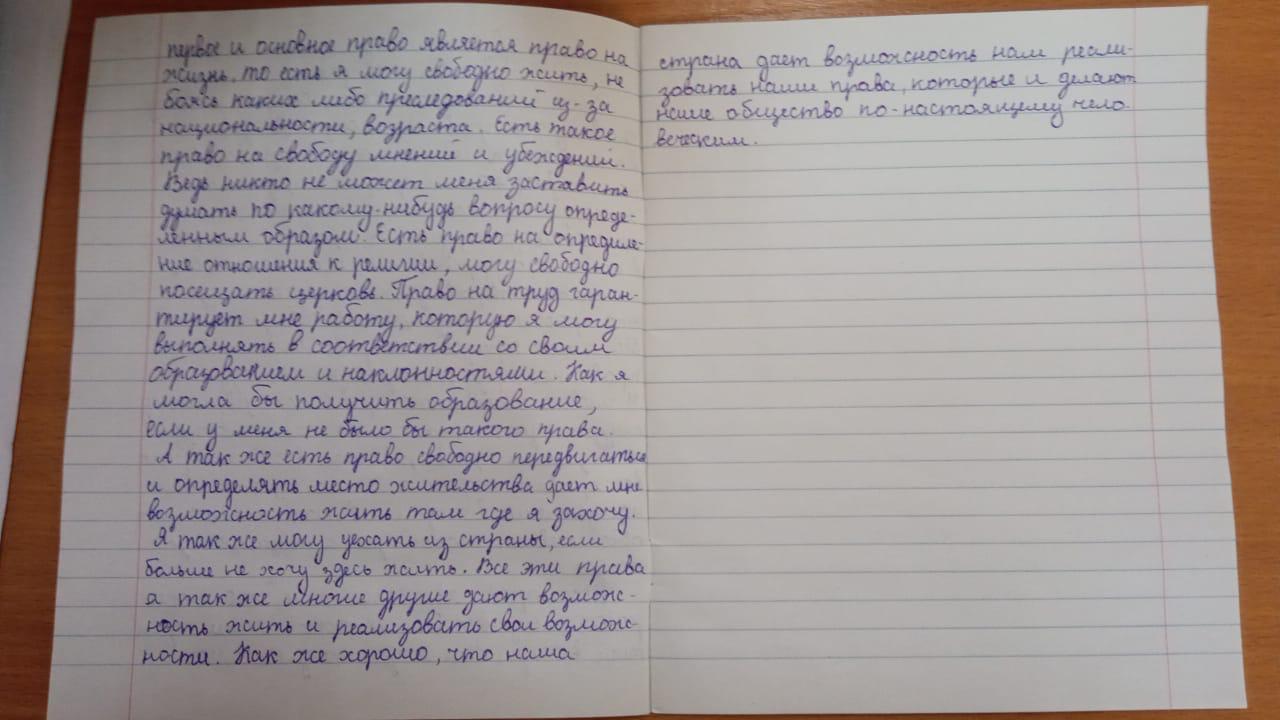 первое и основное право является право на
жизнь, то есть я могу свободно жить, не
боясь каких либо преследований из-за
национальности, возраста. Есть такое
право на свободу мнений и убеждений.
Ведь никто не может меня заставить
думать по какому-нибудь вопросу опреде-
лённым образом. Есть право на определе-
ние отношения к религии, могу свободно
посещать церковь. Право на труд гаран-
тирует мне работу, которую я могу
выполнять в соответствии со своим
образованием и наклонностями. Как я
могла бы получить образование,
если у меня не было бы такого права.
А так же есть право свободно передвигаться
и определять место жительства дает мне
возможность жить там где я захочу.
Я так же могу уехать из страны, если
больше не хочу здесь жить. Все эти права
я так же многие другие дают возмож-
ность жить и реализовать свои возмож-
ности. Как же хорошо, что наша
страна дает возможность нам реали-
зовать наши права, которые и делают
наше общество по-настоящему чело
веческим.